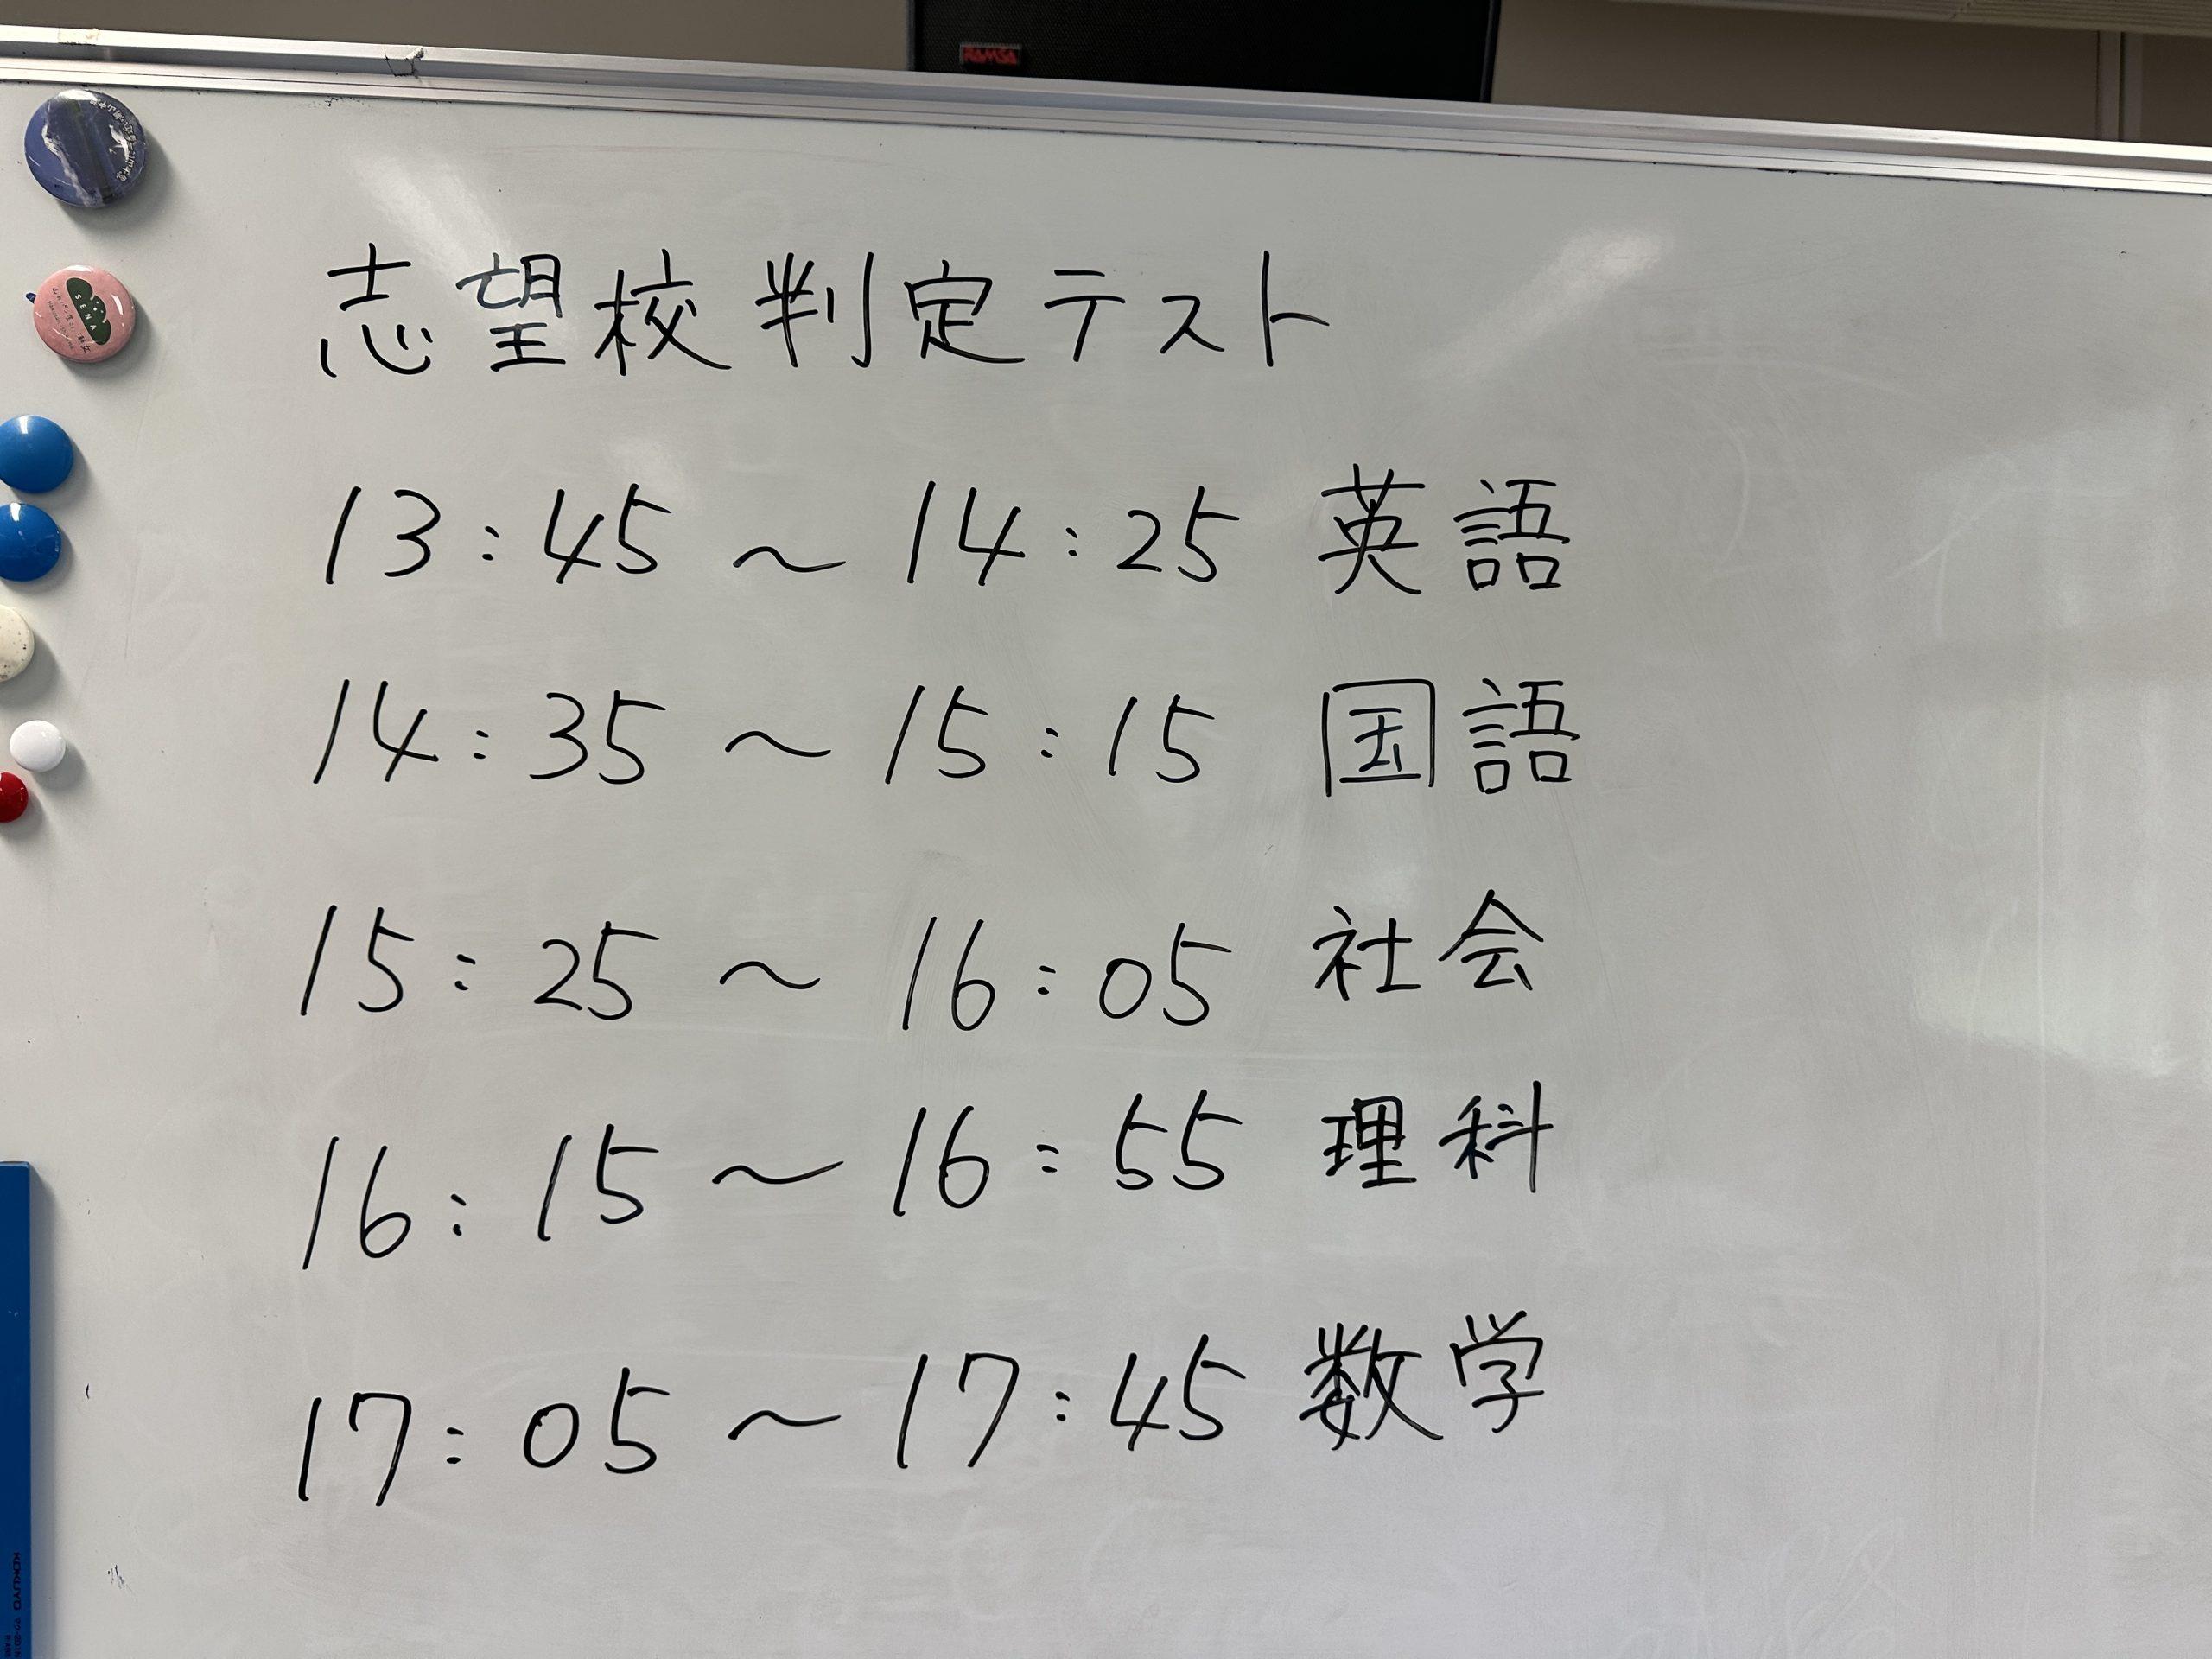 RAMSA
志望校判定テスト
13:45 ～ 14:25 英語
14:35 ～ 15:15 国語
15:25 ～ 16:05 社会
16:15 ～ 16:55 理科
17:05 ～ 17:45 数学
SENA